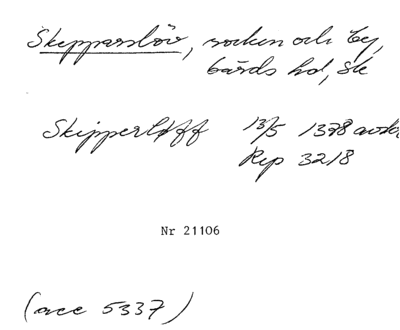 Skepparslöv, socken och by,
Gärds hd, Sk
Skipperløff 13/5 1378 avskr
Rep 3218
Nr 21106
(acc 5337)